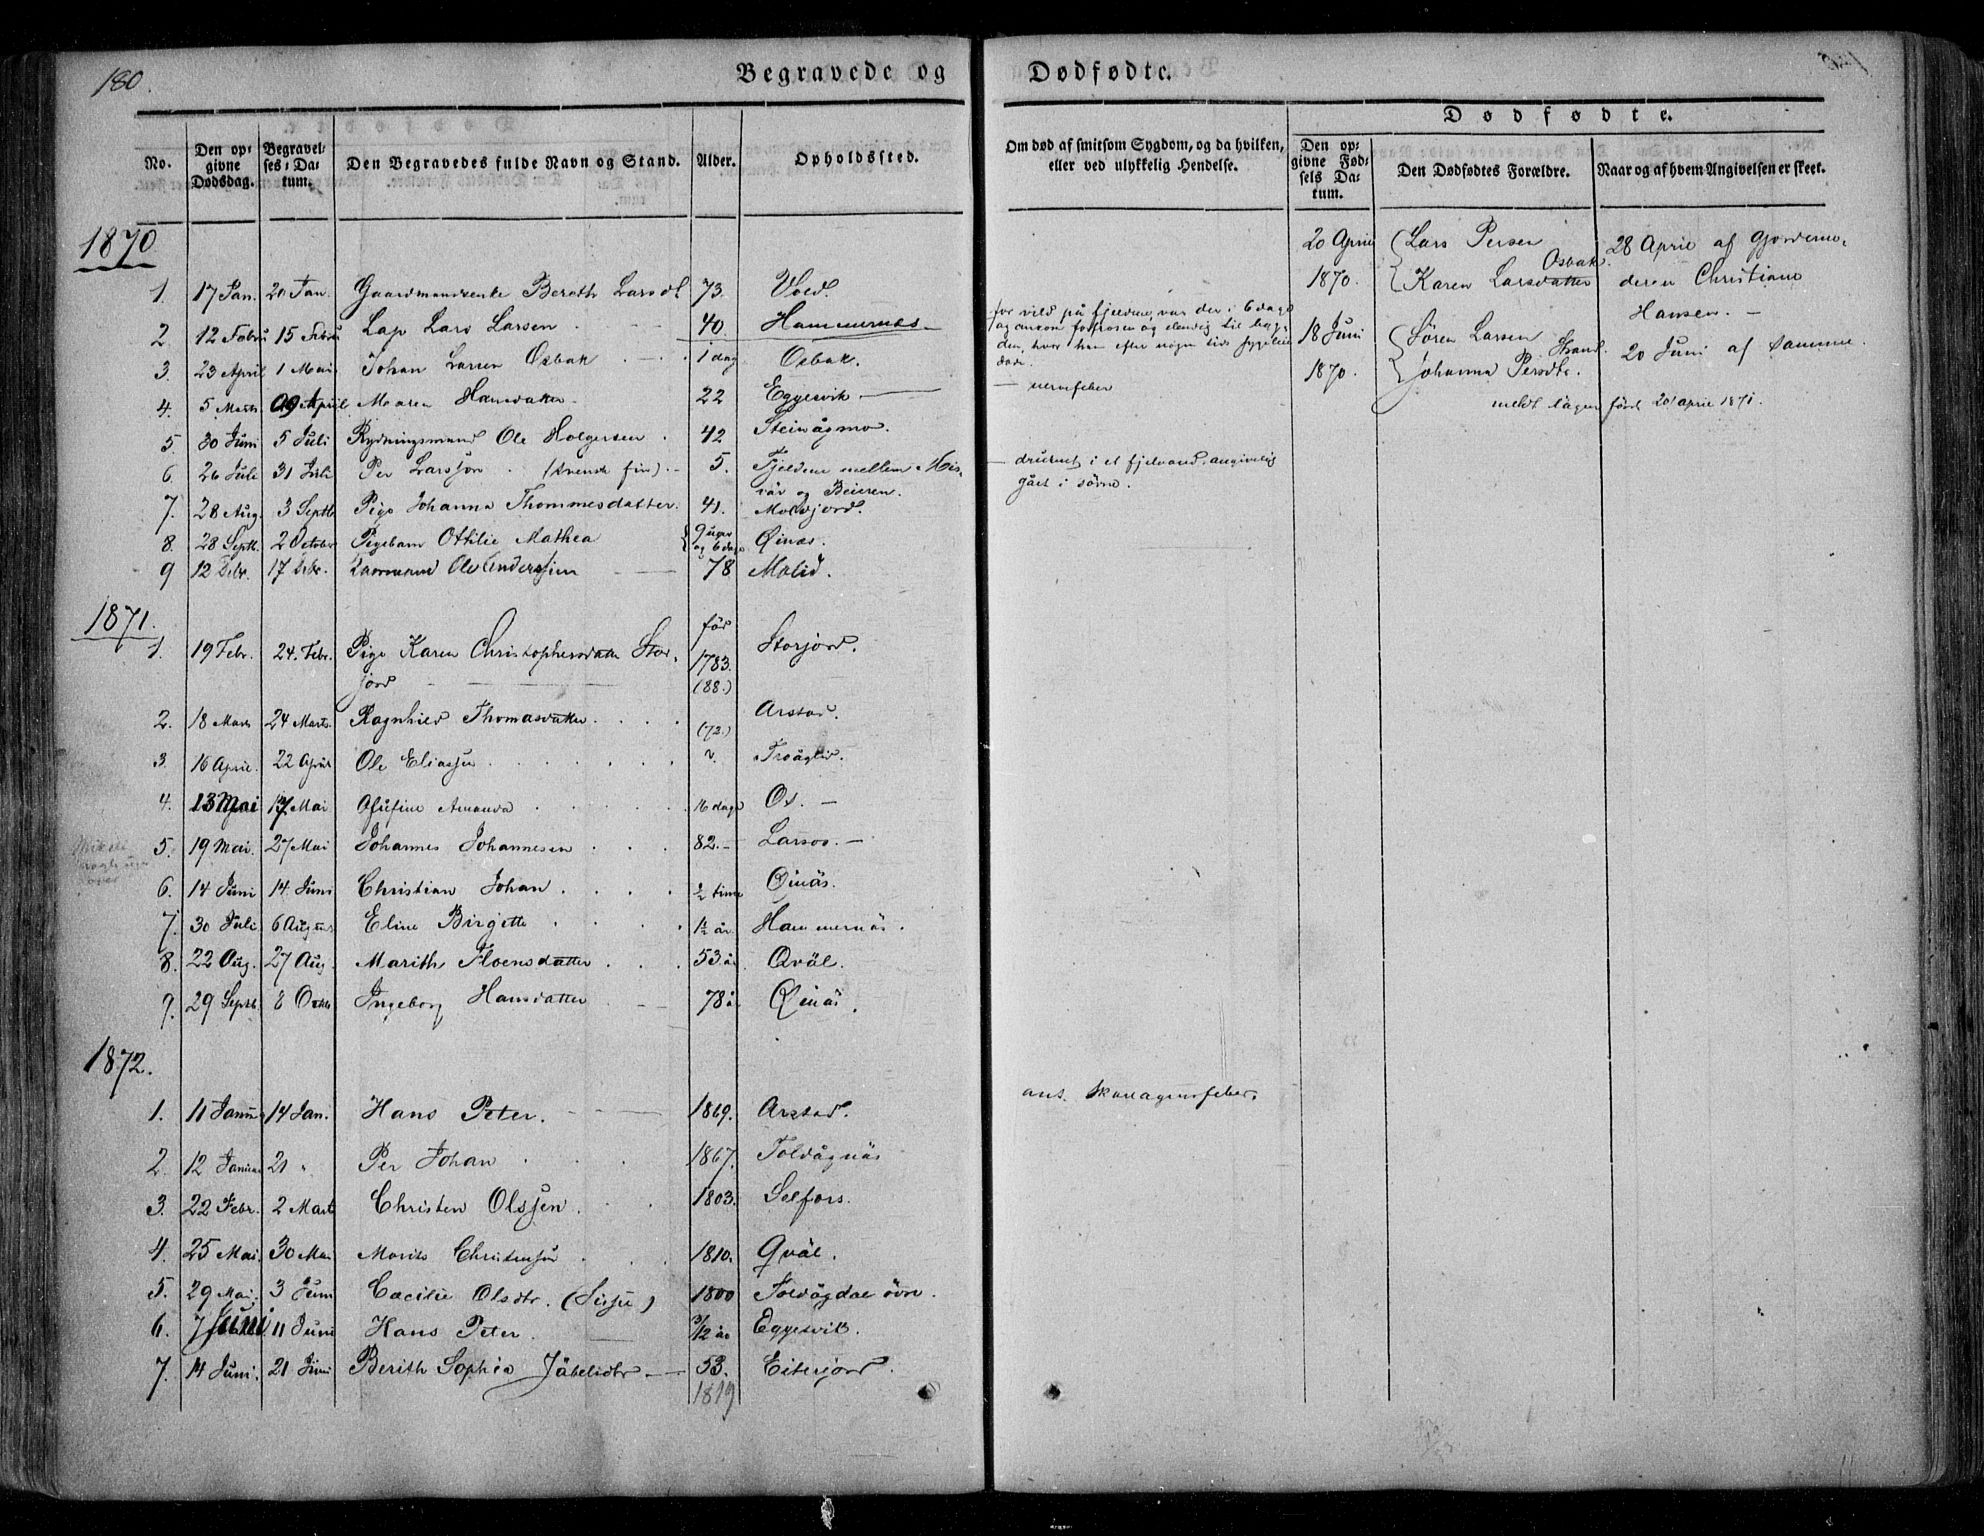 180.
Begravede og Dødfødte.
Dødfødte.
No.
Den opgivne Dødsdag.
Begravelses-Datum.
Den Begravedes fulde Navn og Stand.
Alder.
Opholdssted.
Om død af smitsom Sygdom, og da hvilken, eller ved ulykkelig Hendelse.
Den opgivne Fødsels Datum.
Den Dødfødtes Forældre.
Naar og af hvem Angivelsen er skeet.
1870
1. 17 Jan. 20 Jan. Gaardmandsenke Bereth Larsdt 73.
2. 12 Febru 15 Febru Lap Lars Larsen 40. Hammernæs
for vild på fjeldene, var der i 6 dage
3. 23 April 1 Mai Johan Larsen Osbak 1 dag Osbak.
4. 5 Marts April Maren Hansdatter 22 Eggesvik — nervefeber
5. 30 Juni 5 Juli Rydningsmand Ole Holgersen 42 Steinågmo.
6. 26 Juli 31 Juli Per Larssøn (svensk fin) 5. Fjeldene mellem Mis-
vär og Beieren.
— druknet i et fjelvand, angivelig
gået i søvne.
7. 28 Aug. 3 Septb Pige Johanna Thommesdatter. 41. Moldjord.
8. 28 Septb. 2 October Pigebarn Ottilie Mathea 9 uger
og 6 dage
9 12 Debr. 17 Debr. Ole Anderssen 78 Molid.
20 April
1870.
Lars Persen
Osbak
Karen Larsdatter
28 April af Gjordemo-
deren Christiane
Hansen. —
18 Juni
1870.
Søren Larsen
Strand.
Johanna Persdtr.
20 Juni af Samme.
1871.
1. 19 Febr. 24. Febr. Pige Karen Christophersdatter Stor-
jord
før
1783.
(88.)
Storjord.
2. 18 Marts 24 Marts. Ragnhild Thomasdatter. (72.) Arstad.
3. 16 April. 22 April Ole Eliassen
4. 13 Mai 17. Mai Amanda 16 dage Os. —
5. 19 Mai. 27 Mai Johannes Johannesen 82.— Larsos.—
6. 14 Juni 14. Juni Christian Johan ½ time
7. 30 Juli 6 August Eline Birgitte 1½ år Hammernäs.
8. 22 Aug. 27 Aug. Marith 53 år Qväl.
9. 29 Septb. 8 Octbr Ingeborg Hansdatter 78 år
1872.
1. 11 Januar 14 Jan. Hans Peter. 1869. Arstad.
ant. Skarlagensfeber.
2. 12 Januar 21 " Per Johan 1867. Toldågnäs
3. 22 Febr. 2 Marts Christen Olssen. 1803. Selfors.
4. 25 Mai 30 Mai Christensen 1810. Qväl.
5. 29 Mai. 3 Juni Cæcilie Olsdtr. (Sisse) 1800 Toldågdal øvre.
6. 7 Juni 11 Juni Hans Peter. 3/12 år Eggesvik.
7. 14 Juni. 21 Juni Berith Sophia 53. Eiterjord.
1819